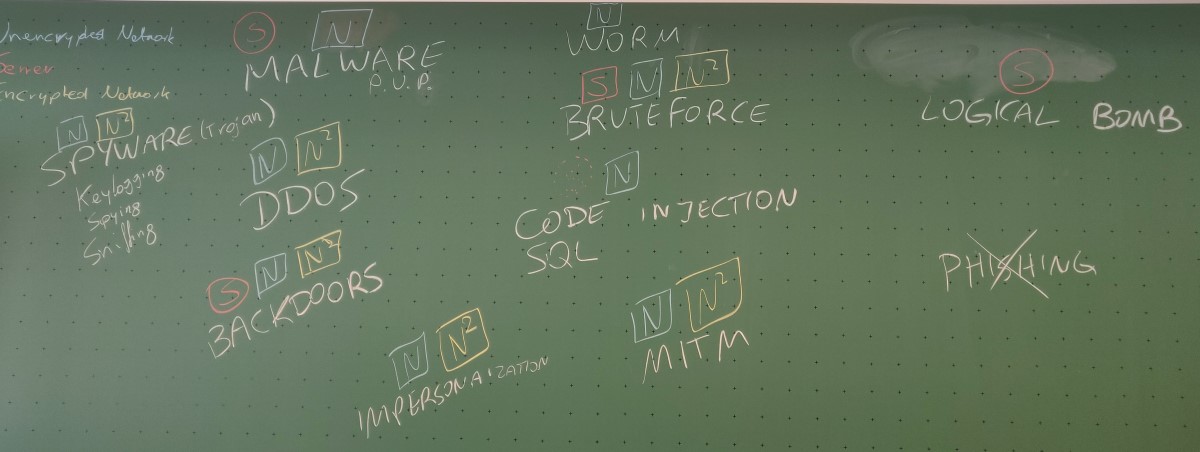 Unencrypted Network
Server
Encrypted Network
N N²
SPYWARE (Trojan)
Keylogging
Spying
Sniffing
S N
MALWARE
P.U.P.
N N²
DDOS
S N N²
BACKDOORS
N N²
IMPERSONAIZATION
N
WORM
S N N²
BRUTEFORCE
N
CODE INJECTION
SQL
N N²
MITM
S
LOGICAL BOMB
PHISHING